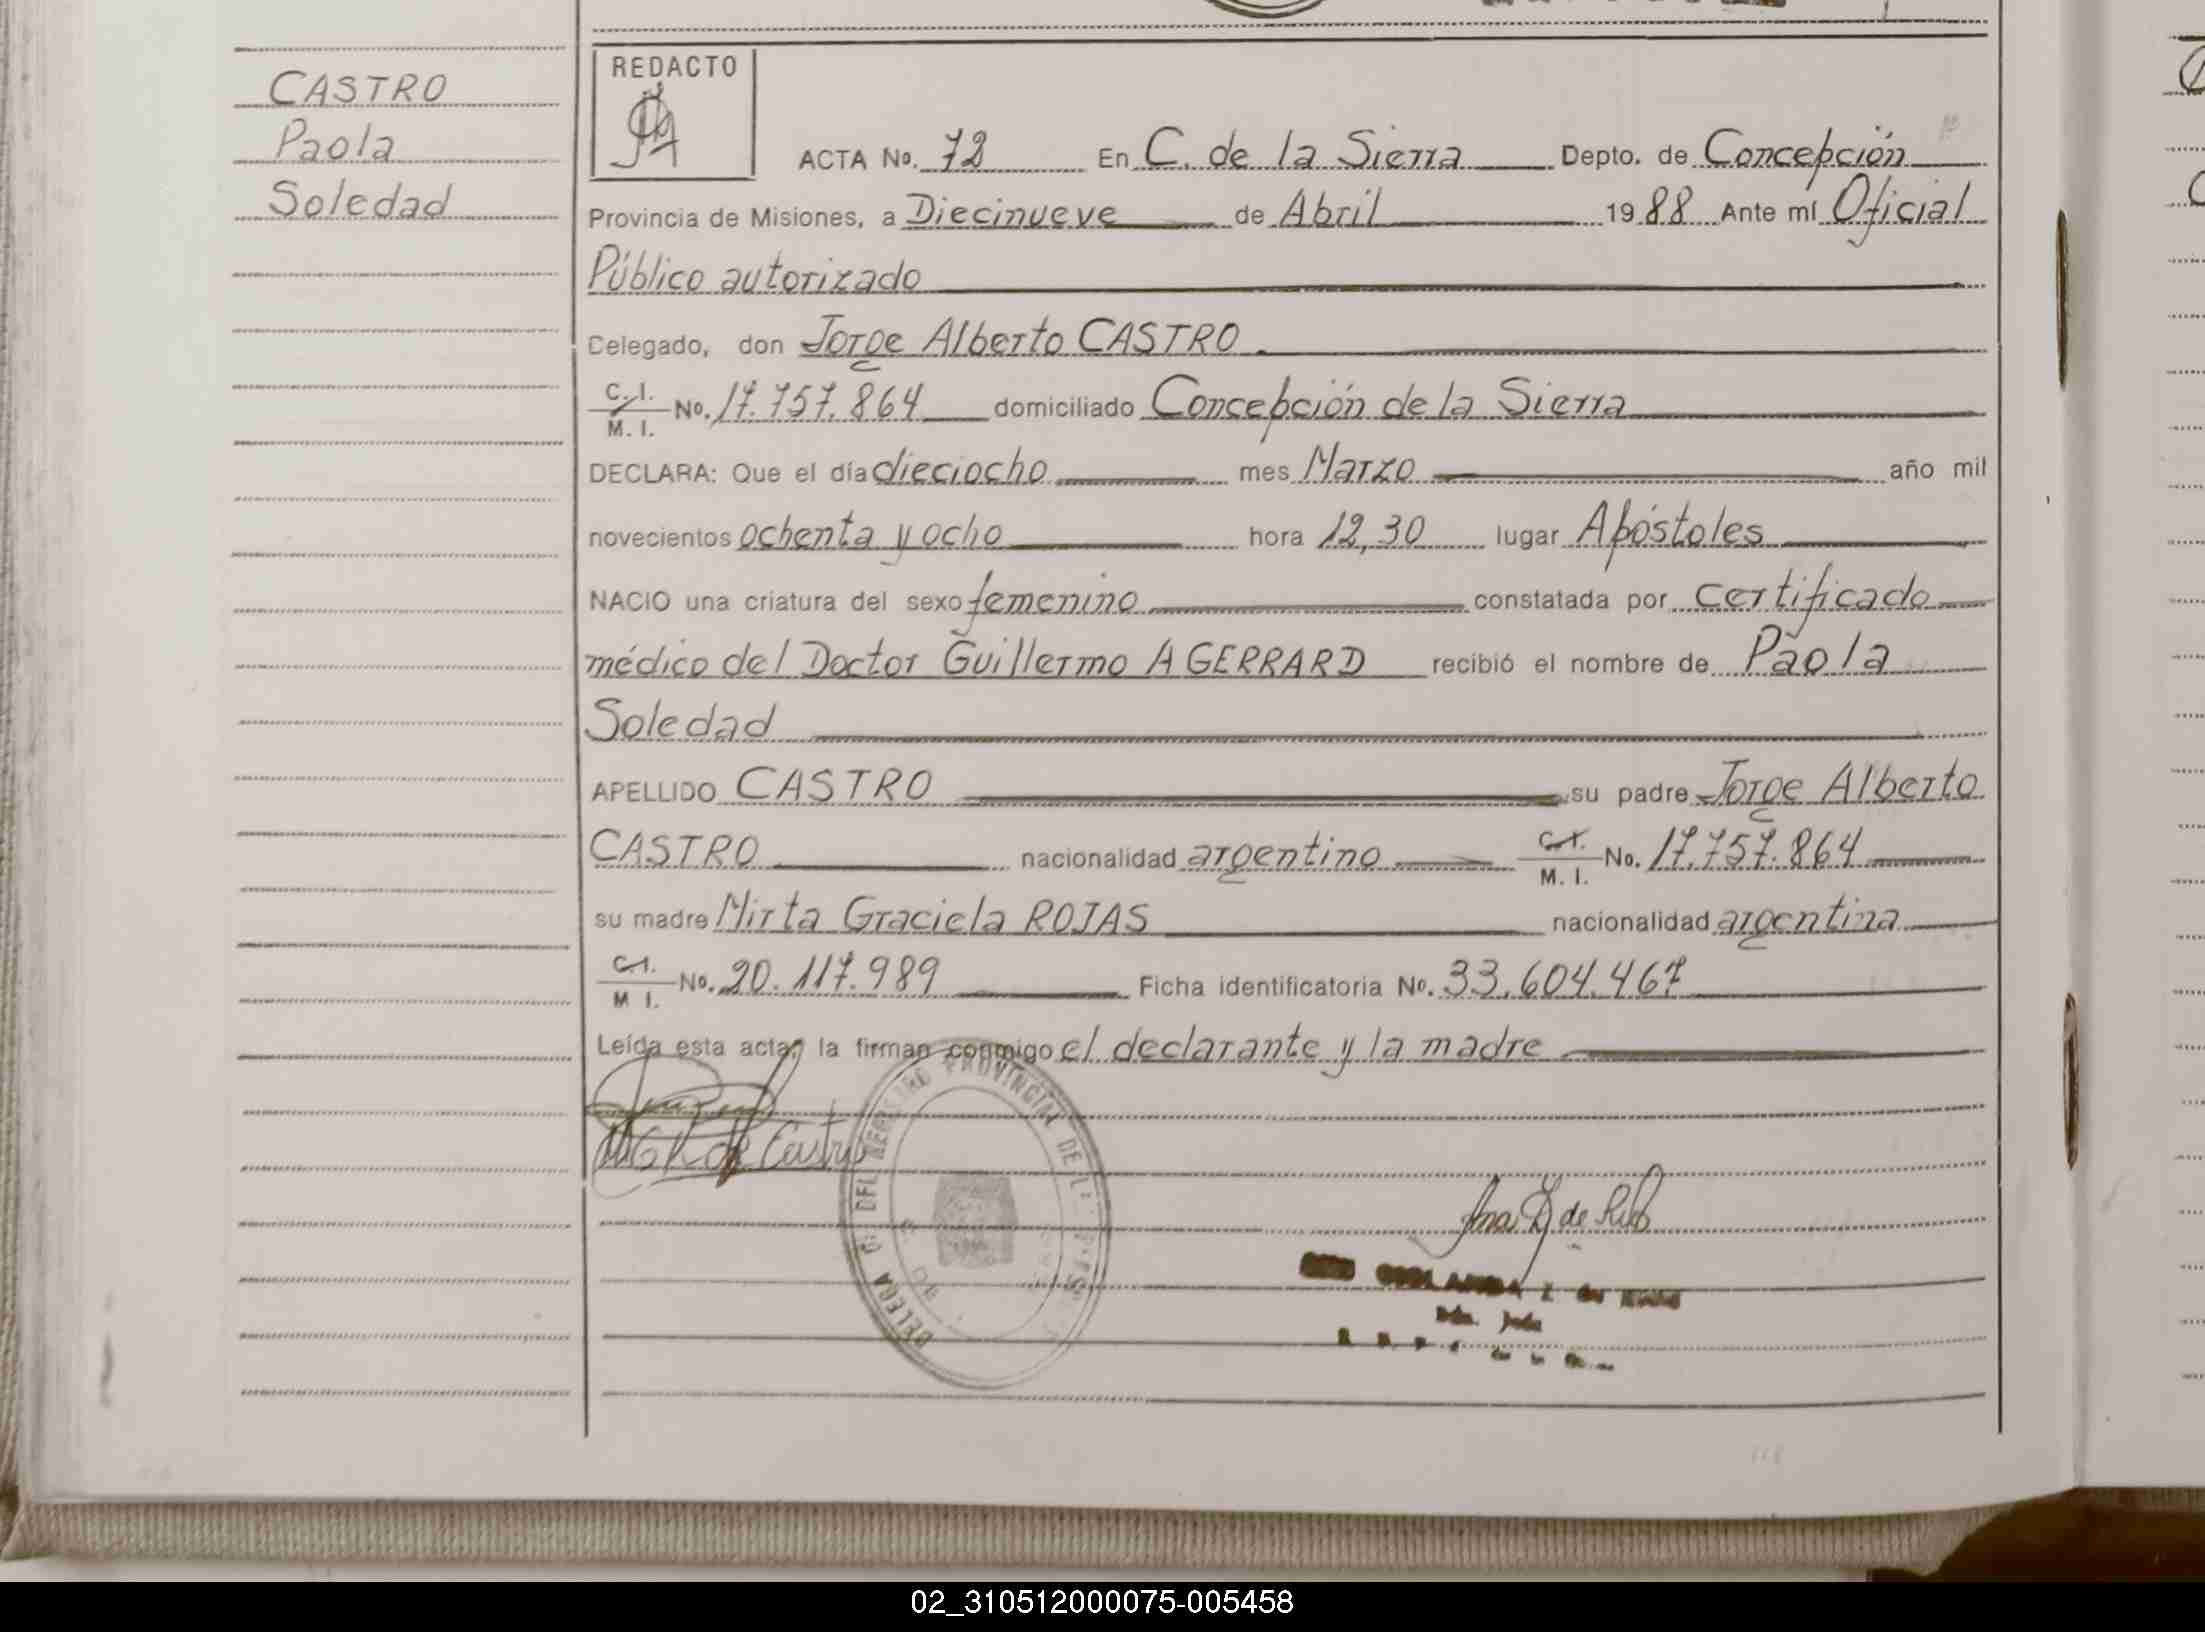 CASTRO
Paola
Soledad
REDACTO
ACTA No. 72 En C. de la Sierra Depto. de Concepción
Provincia de Misiones, a Diecinueve de Abril 1988 Ante mí Oficial
Público autorizado
Celegado, don Jorge Alberto CASTRO
C. I. / M. I. No. 17.757.864 domiciliado Concepción de la Sierra
DECLARA: Que el día dieciocho mes Marzo año mil
novecientos ochenta y ocho hora 12,30 lugar Apóstoles
NACIO una criatura del sexo femenino constatada por certificado
médico del Doctor Guillermo A GERRARD recibió el nombre de Paola
Soledad
APELLIDO CASTRO su padre Jorge Alberto
CASTRO nacionalidad argentino C. I. / M. I. No. 17.757.864
su madre Mirta Graciela ROJAS nacionalidad argentina
C. I. / M I. No. 20.117.989 Ficha identificatoria No. 33.604.467
Leída esta acta, la firman conmigo el declarante y la madre
MGR de Castro
DEL REGISTRO PROVINCIAL DE
Ana Z de
02_310512000075-005458